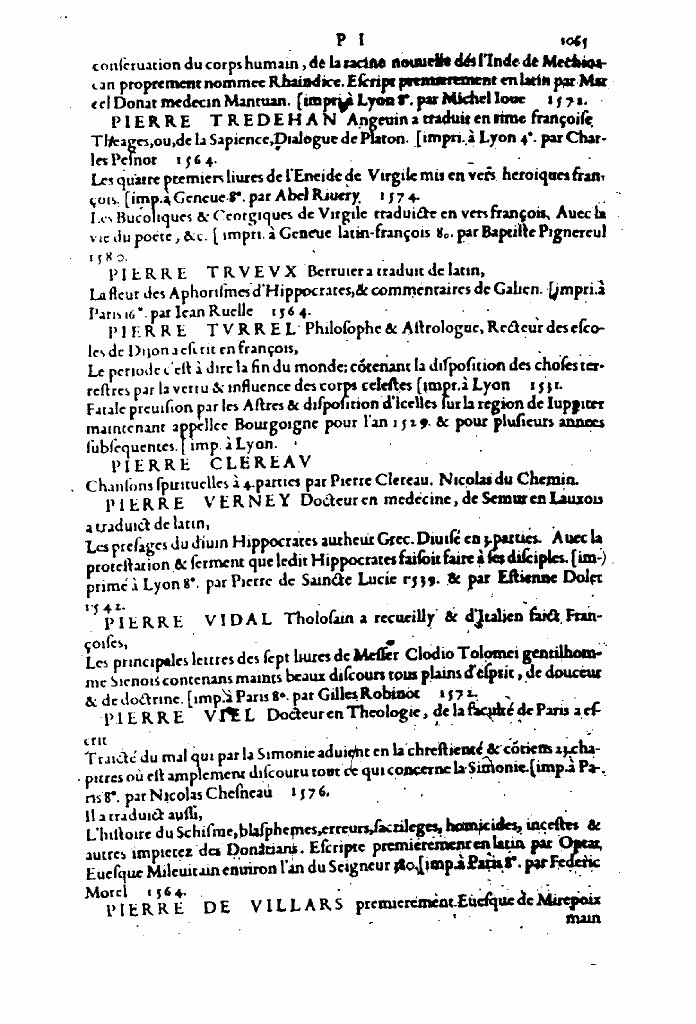 P I 1065
conſeruation du corps humain, de la racine nouuelle dés l'Inde de Mechioa-
can proprement nommee Rhaindice. Eſcript premierement en latin par Mar
cel Donat medecin Mantuan. [impri. à Lyon 8°. par Michel Ioue 1572.
PIERRE TREDEHAN Angeuin a traduit en rime françoiſe
Theages, ou, de la Sapience, Dialogue de Platon. [impri. à Lyon 4°. par Char-
les Peſnot 1564.
Les quatre premiers liures de l'Eneide de Virgile mis en vers heroiques fran
çois. [imp. à Geneue 8°. par Abel Riuery 1574.
Les Bucoliques & Georgiques de Virgile traduicte en vers françois, Auec la
vie du poete, &c. [ impri. à Geneue latin-françois 8o. par Baptiſte Pignereul
1580.
PIERRE TRVEVX Berruier a traduit de latin,
La fleur des Aphoriſmes d'Hippocrates, & commentaires de Galien. [impri. à
Paris 16°. par Iean Ruelle 1564.
PIERRE TVRREL Philoſophe & Aſtrologue, Recteur des eſco-
les de Dijon a eſcrit en françois,
Le periode c'eſt à dire la fin du monde: cōtenant la diſpoſition des choſes ter-
reſtres par la vertu & influence des corps celeſtes [impr. à Lyon 1531.
Fatale preuiſion par les Aſtres & diſpoſition d'icelles ſur la region de Iuppiter
maintenant appellee Bourgoigne pour l'an 1529. & pour pluſieurs annees
ſubſequentes. [ imp. à Lyon.
PIERRE CLEREAV
Chanſons ſpirituelles à 4. parties par Pierre Clereau. Nicolas du Chemin.
PIERRE VERNEY Docteur en medecine, de Semur en Lauxois
a traduict de latin,
Les preſages du diuin Hippocrates autheur Grec. Diuiſé en 3. parties. Auec la
proteſtation & ſerment que ledit Hippocrates faiſoit faire à ſes diſciples. [im-)
primé à Lyon 8°. par Pierre de Saincte Lucie 1539. & par Eſtienne Dolet
1542.
PIERRE VIDAL Tholoſain a recueilly & d'Italien faict Fran-
çoiſes,
Les principales lettres des ſept liures de Meſſer Clodio Tolomei gentilhom-
me Sienois contenans maints beaux diſcours tous plains d'eſprit, de douceur
& de doctrine. [imp. à Paris 8°. par Gilles Robinot 1572.
PIERRE VIEL Docteur en Theologie, de la faculté de Paris a eſ-
crit
Traicté du mal qui par la Simonie aduient en la chreſtienté & cōtient 23. cha-
pitres où eſt amplement diſcouru tout ce qui concerne la Simonie. [imp. à Pa-
ris 8°. par Nicolas Cheſneau 1576.
Il a traduict auſſi,
L'hiſtoire du Schiſme, blaſphemes, erreurs, ſacrileges, homicides, inceſtes &
autres impietez des Donatians. Eſcripte premierement en latin par Optat,
Eueſque Mileuitain enuiron l'an du Seigneur 380. [imp. à Paris 8°. par Federic
Morel 1564.
PIERRE DE VILLARS premierement Eueſque de Mirepoix
main